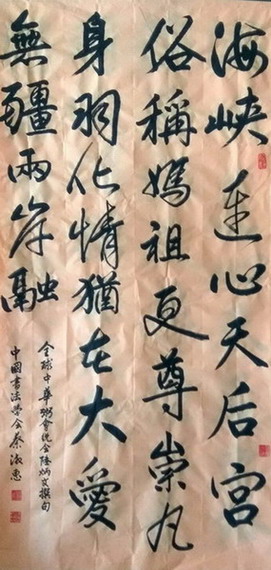 海峽連心天后宮
俗稱媽祖更尊崇凡
身羽化情猶在大愛
無疆兩岸融
全球中華粥會倪會陸炳文撰句
中國書法學會蔡淑惠